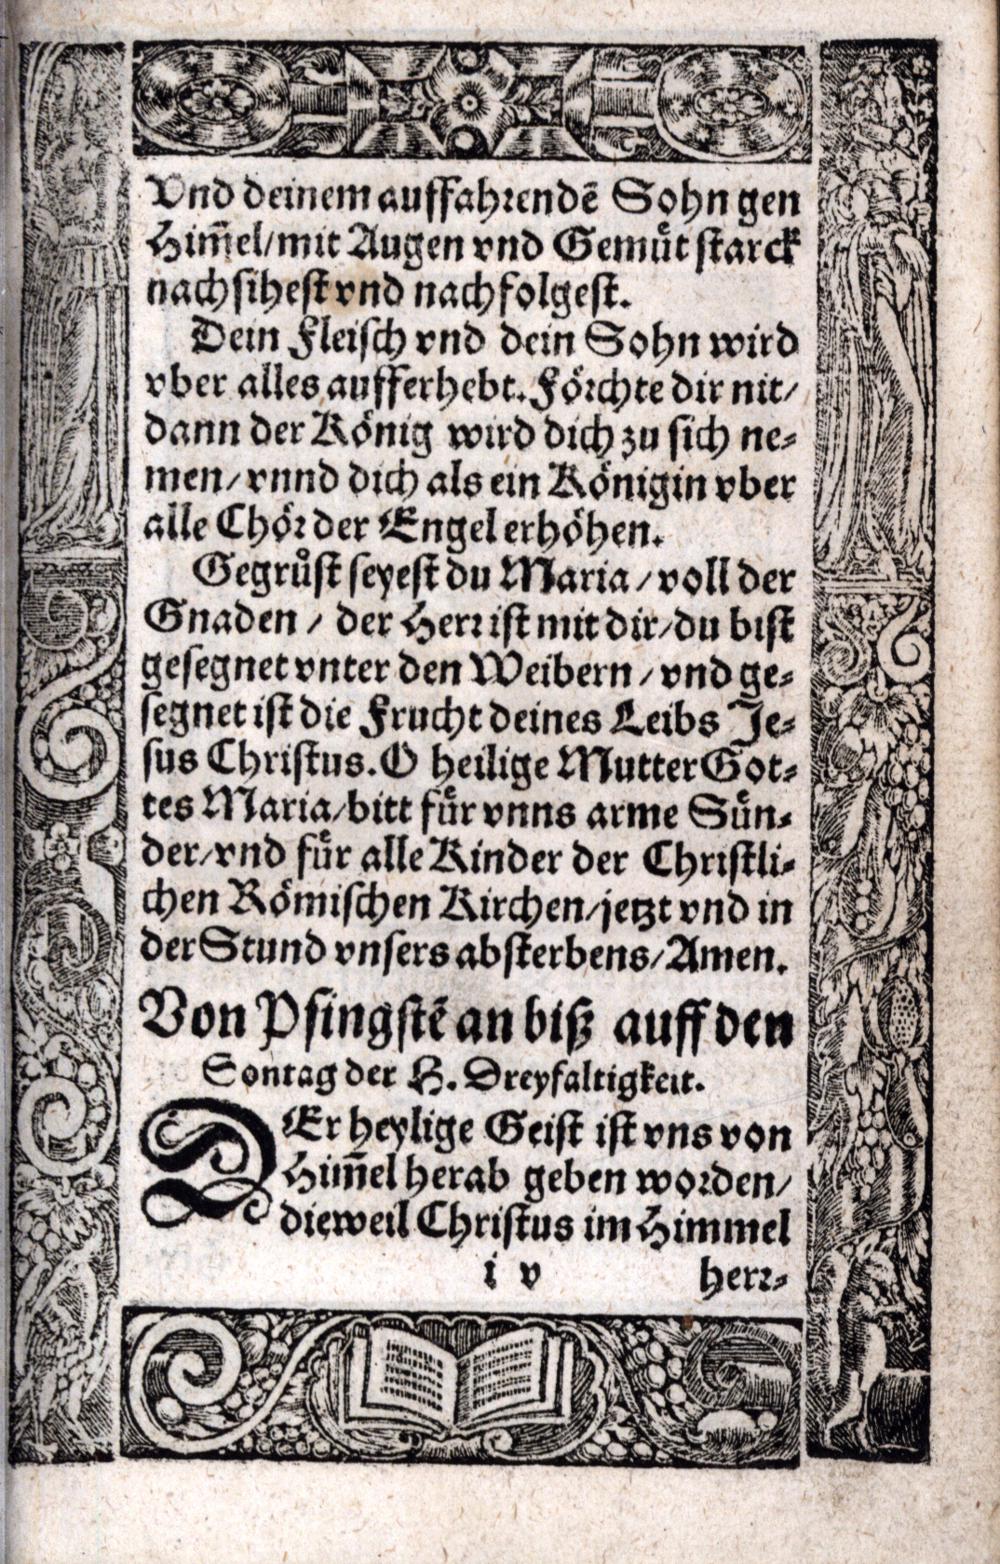 Vnd deinem auffahrendẽ Sohn gen
Him̃el/mit Augen vnd Gemuͤt starck
nachsihest vnd nachfolgest.
Dein Fleisch vnd dein Sohn wird
vber alles aufferhebt. Foͤrchte dir nit/
dann der Koͤnig wird dich zu sich ne⸗
men/vnnd dich als ein Koͤnigin vber
alle Choͤr der Engel erhoͤhen.
Gegruͤst seyest du Maria/voll der
Gnaden/ der Herr ist mit dir/du bist
gesegnet vnter den Weibern/vnd ge⸗
segnet ist die Frucht deines Leibs Je⸗
sus Christus. O heilige Mutter Got⸗
tes Maria/bitt fuͤr vnns arme Suͤn⸗
der/vnd fuͤr alle Kinder der Christli⸗
chen Roͤmischen Kirchen/jetzt vnd in
der Stund vnsers absterbens/Amen.
Von Pfingstẽ an biß auff den
Sontag der H. Dreyfaltigkeit.
DEr heylige Geist ist vns von
Him̃el herab geben worden/
dieweil Christus im Himmel
i v herr⸗